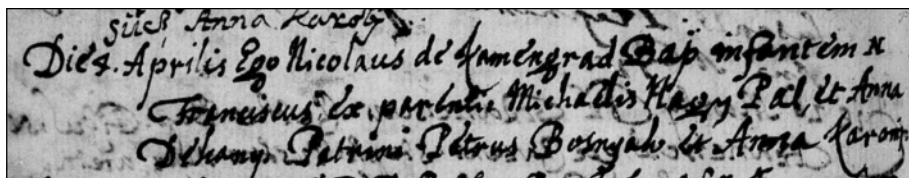 Anna
Die 8. Aprilis Ego Nicolaus de Kamengrad Bap infantem N
Franciscus ex parentis Michaelis Nagy Pal et Anna
Dekany. Patrini Petrus Bosnyak et Anna